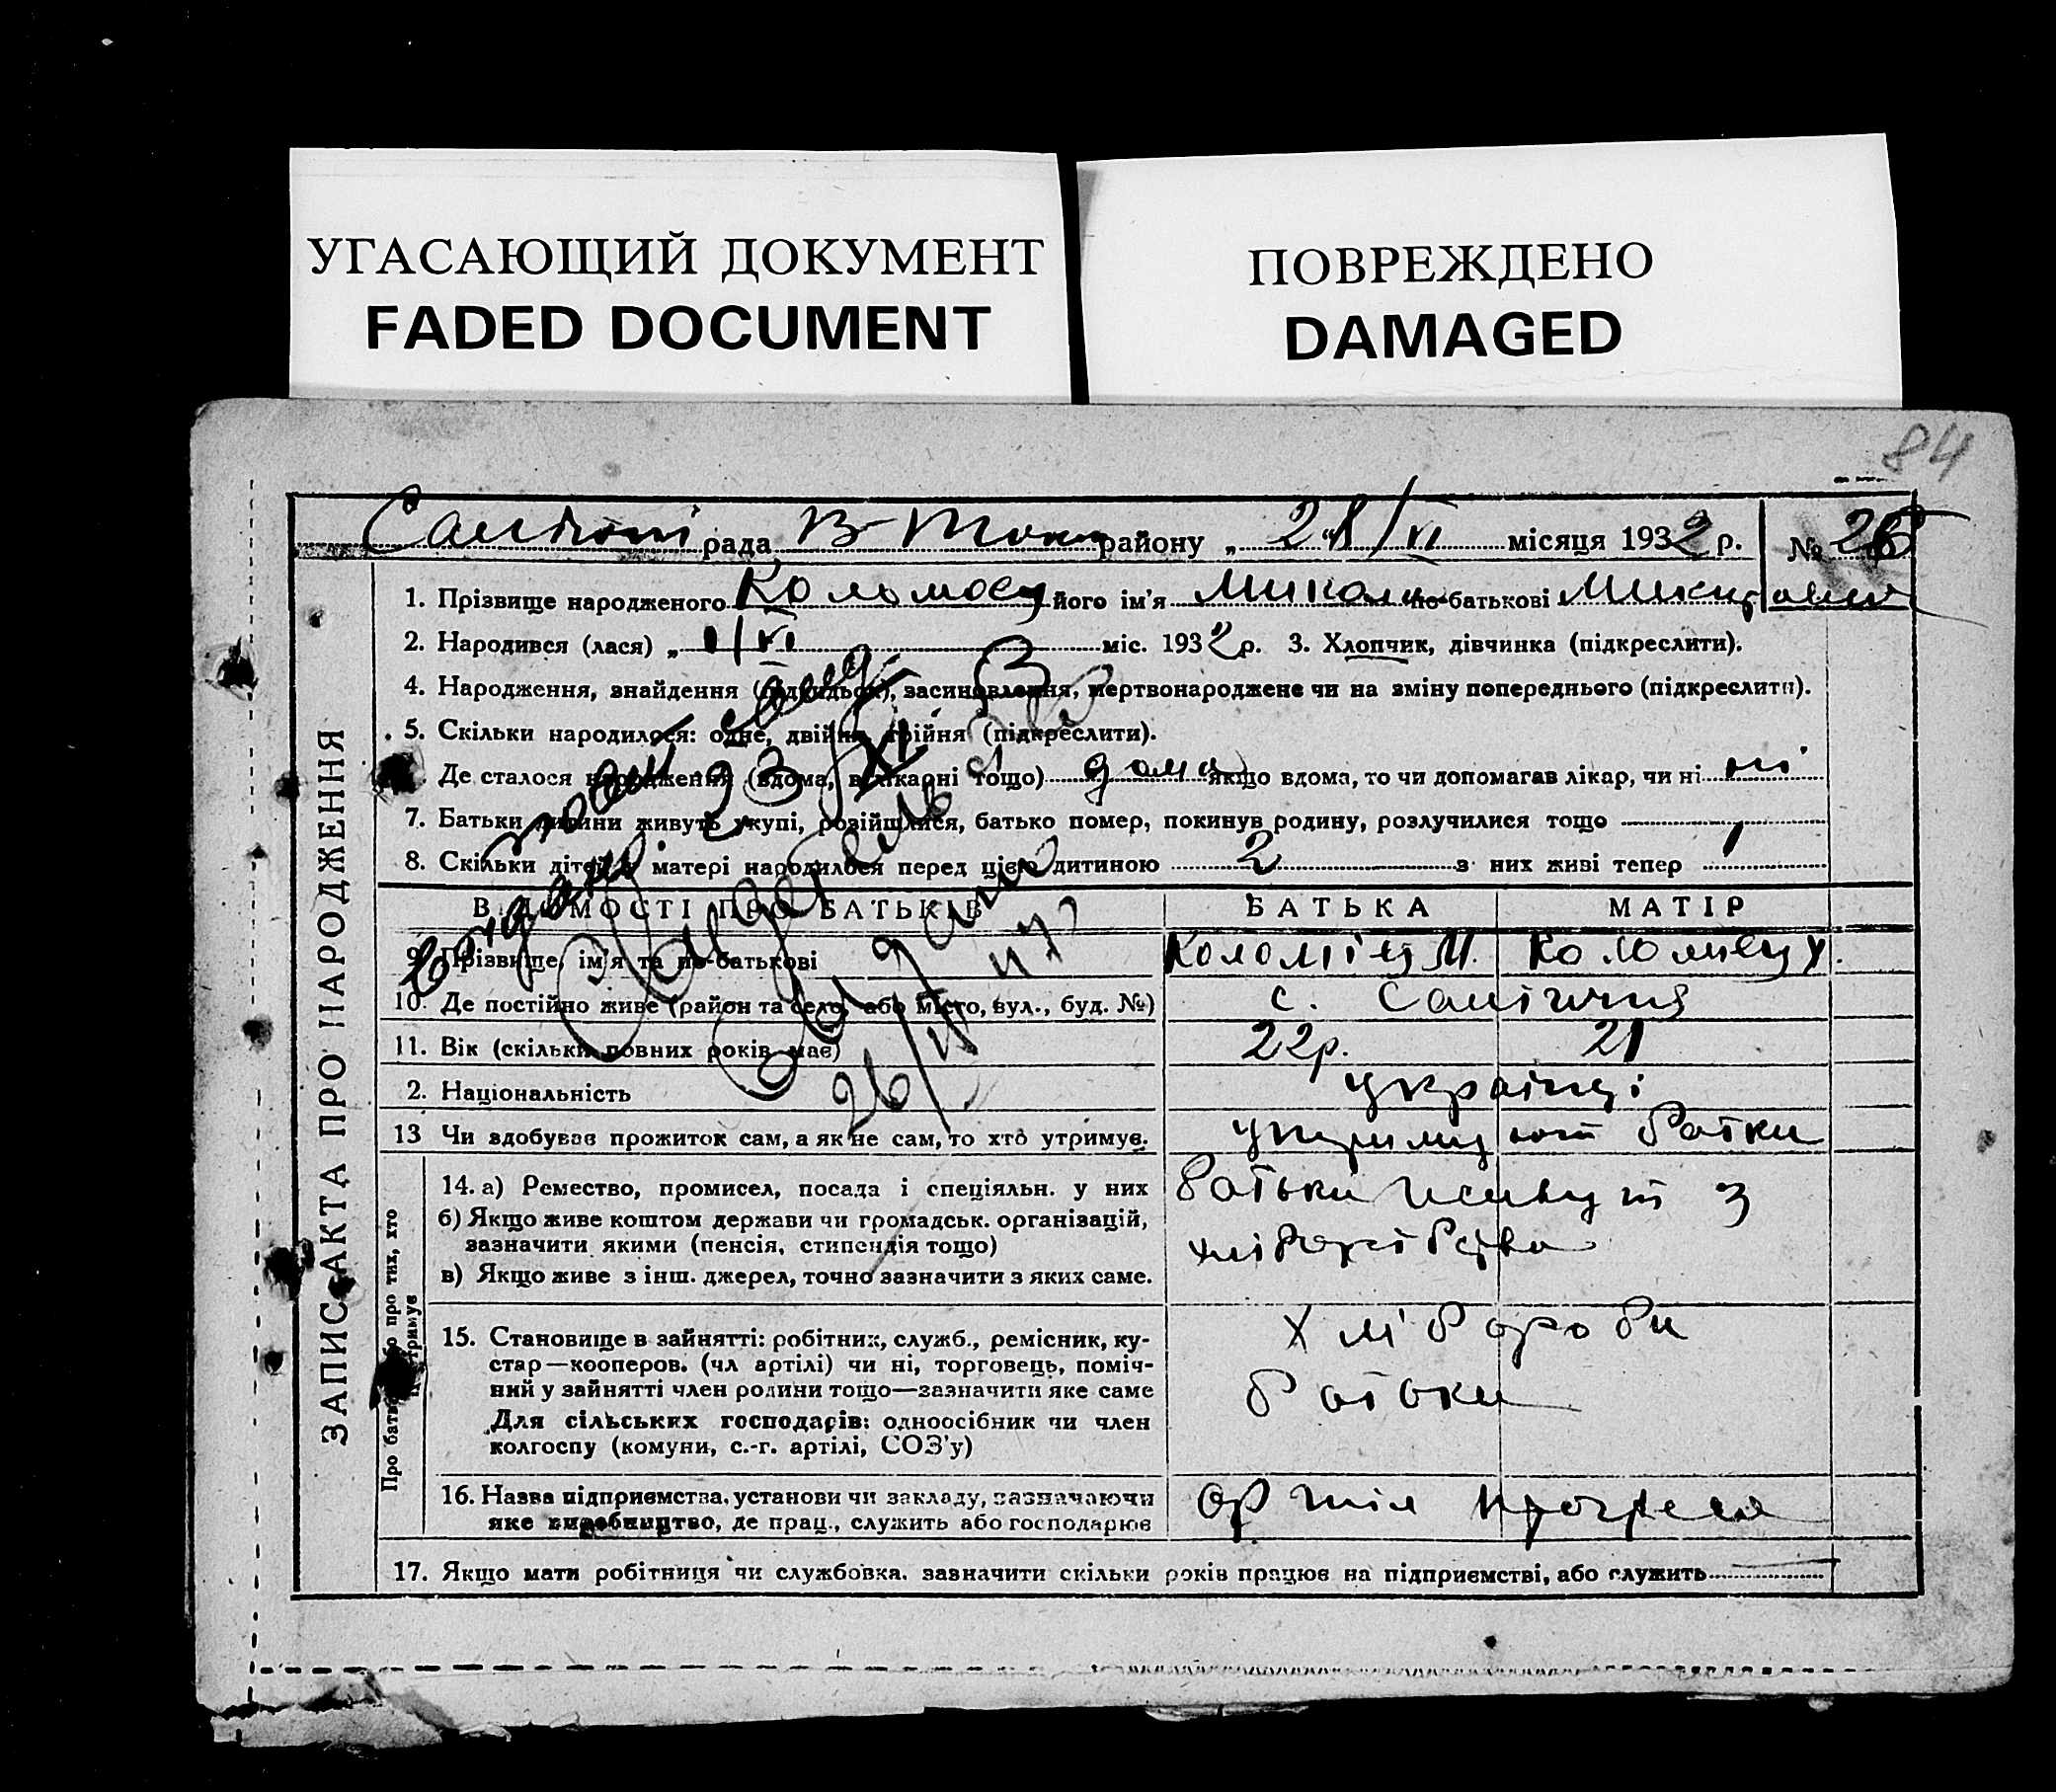 УГАСАЮЩИЙ ДОКУМЕНТ
FADED DOCUMENT
ПОВРЕЖДЕНО
DAMAGED
84
рада В-Ток району „ 28/VI місяця 1932 р. № 26
1. Прізвище народженого його ім'я Микола по-батькові
2. Народився (лася) „ 1/VI міс. 1932 р. 3. Хлопчик, дівчинка (підкреслити).
4. Народження, знайдення (підкидьок), засиновлення, мертвонароджене чи на зміну попереднього (підкреслити).
5. Скільки народилося: одне, двійня, трійня (підкреслити).
Де сталося народження (вдома, в лікарні тощо) дома якщо вдома, то чи допомагав лікар, чи ні ні
7. Батьки дитини живуть укупі, розійшлися, батько помер, покинув родину, розлучилися тощо
8. Скільки дітей у матері народилося перед цією дитиною 2 з них живі тепер 1
ВІДОМОСТІ ПРО БАТЬКІВ БАТЬКА МАТІР
9. Прізвище, ім'я та по-батькові Коломієц М.
10. Де постійно живе (район та село, або місто, вул., буд. №) с.
11. Вік (скільки повних років має) 22р. 21
2. Національність українці
13 Чи здобував прожиток сам, а як не сам, то хто утримує. утримують батки
14. а) Ремество, промисел, посада і спеціяльн. у них батьки живут з
б) Якщо живе коштом держави чи громадськ. організацій,
зазначити якими (пенсія, стипендія тощо)
в) Якщо живе з інш. джерел, точно зазначити з яких саме.
15. Становище в зайнятті: робітник, служб., ремісник, ку-
стар—кооперов. (чл артілі) чи ні, торговець, поміч-
ний у зайнятті член родини тощо—зазначити яке саме
Для сільських господарів: одноосібник чи член
колгоспу (комуни, с.-г. артілі, СОЗ'у)
хлібороби
батьки
16. Назва підприємства, установи чи закладу, зазначаючи
яке виробництво, де прац., служить або господарює
17. Якщо мати робітниця чи службовка, зазначити скільки років працює на підприємстві, або служить
ЗАПИС АКТА ПРО НАРОДЖЕННЯ
26/VI